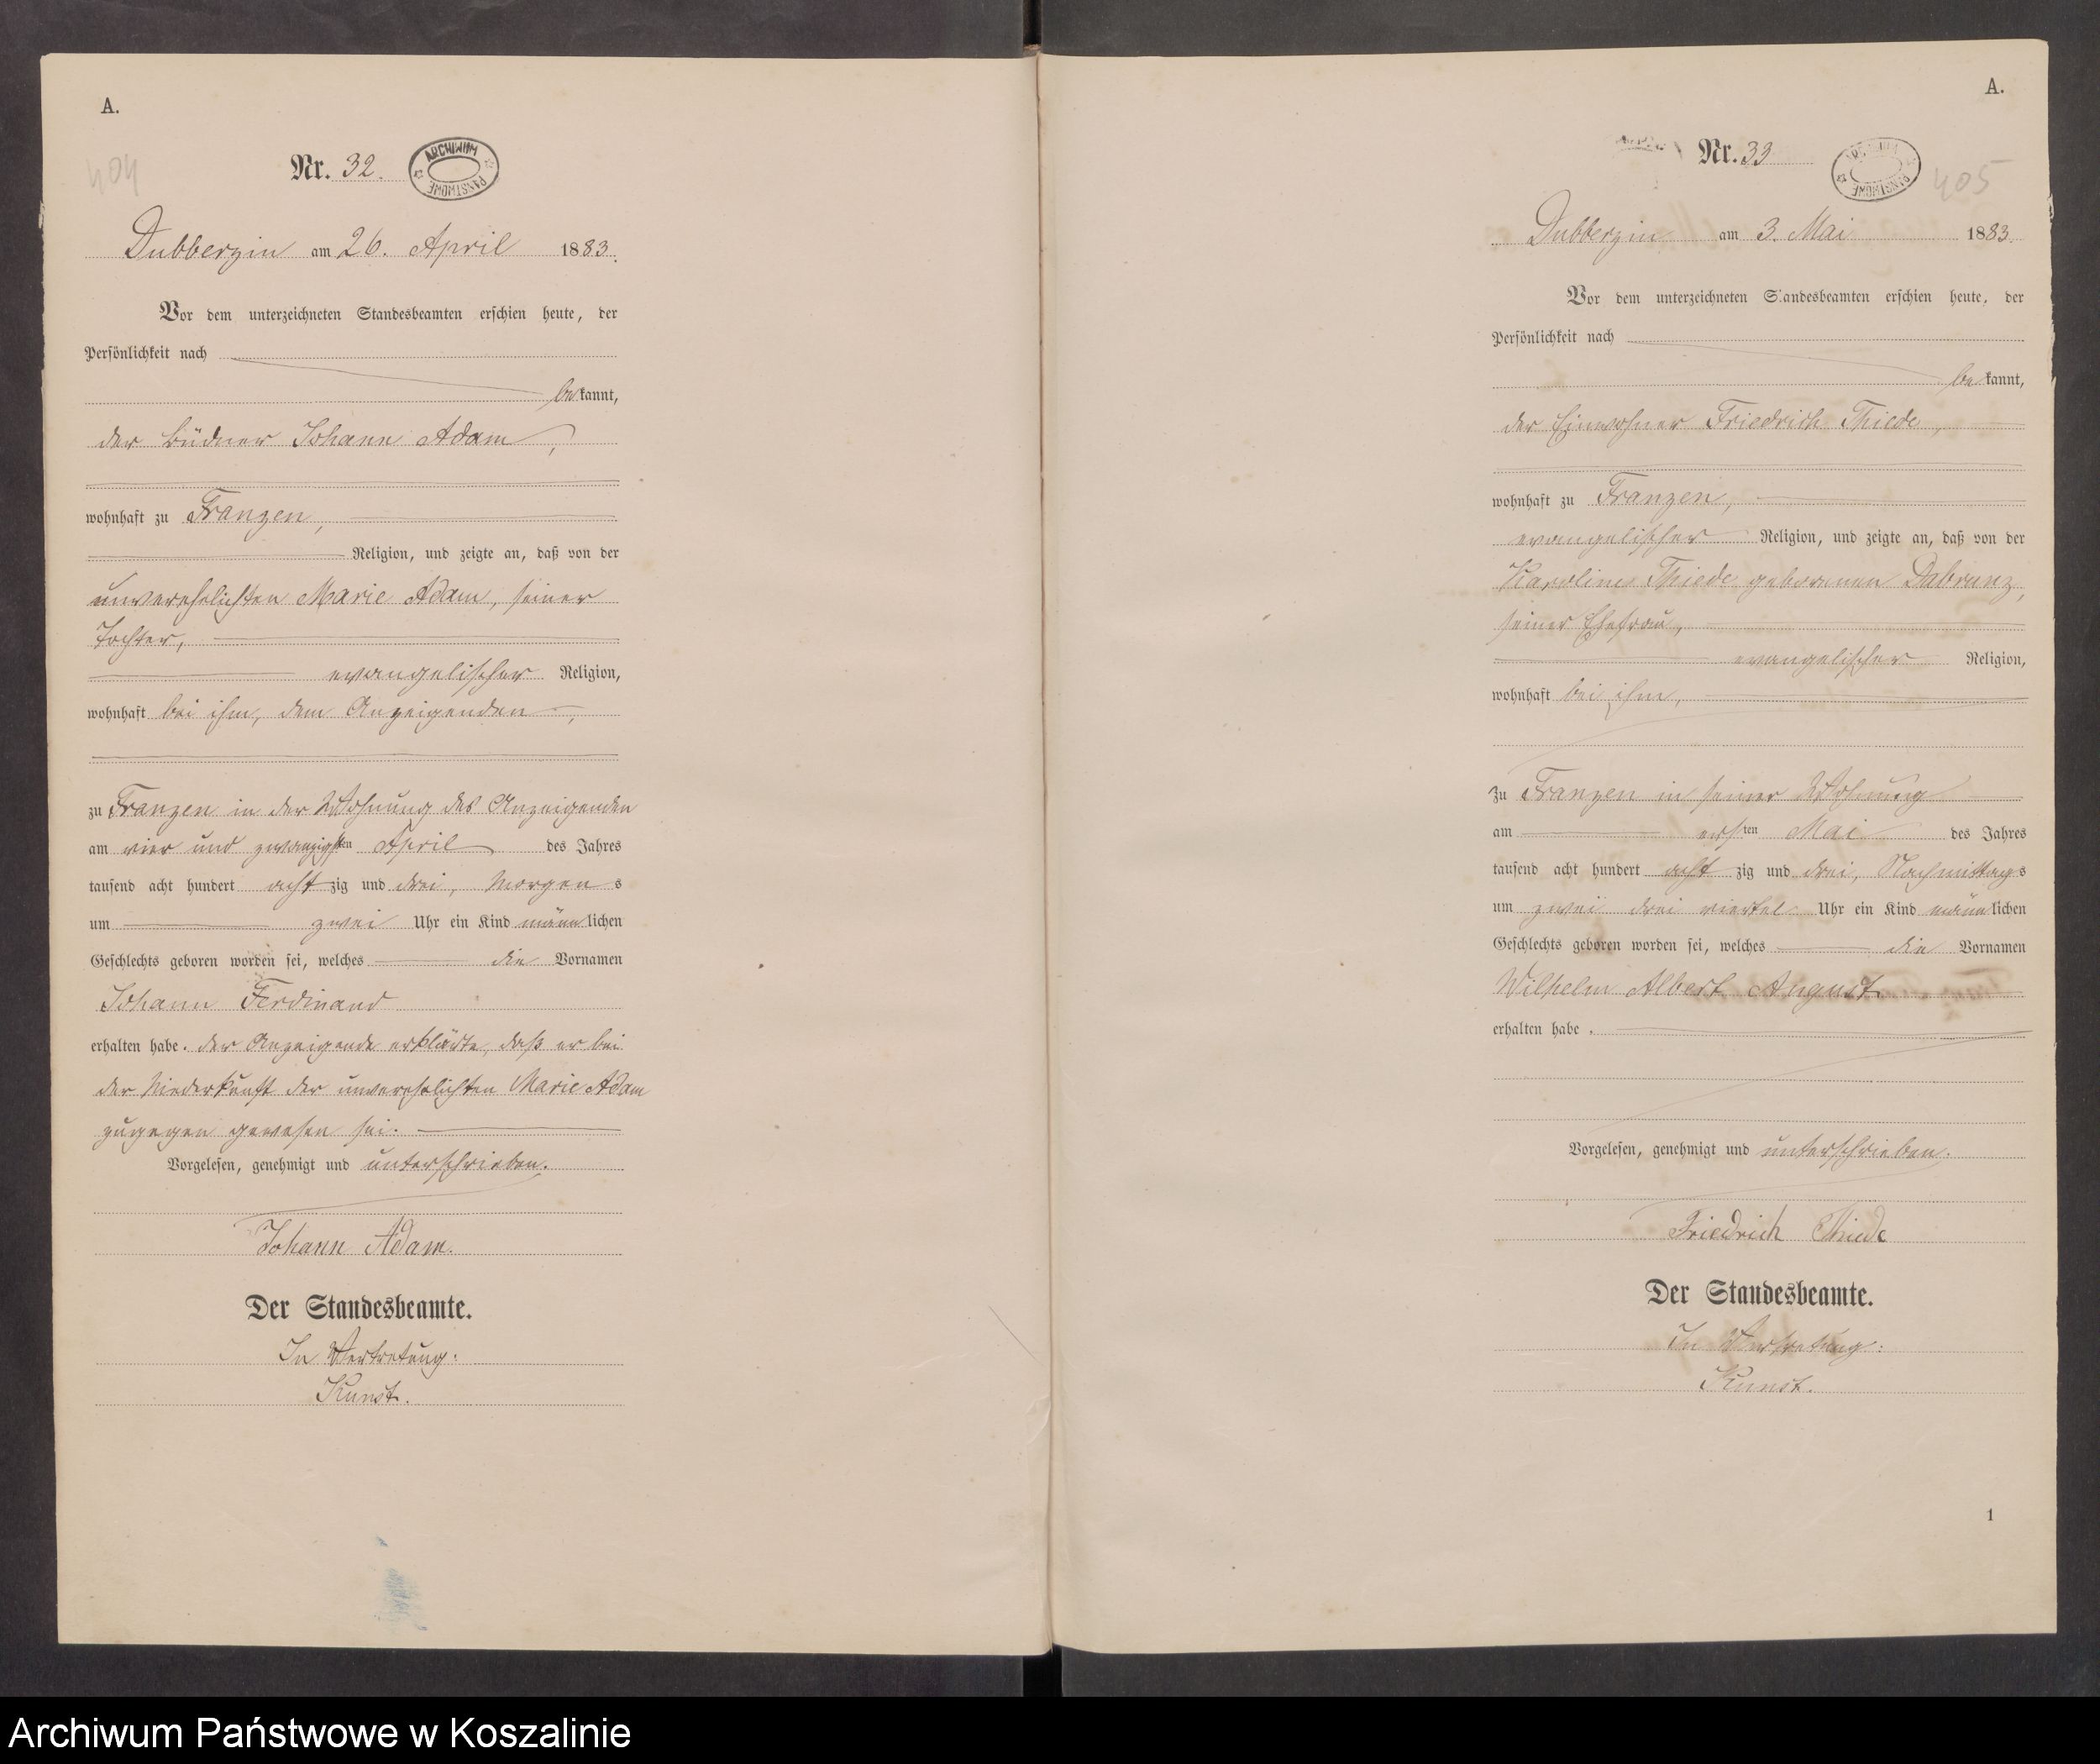 A.
404
Nr. 32.
ARCHIWUM PAŃSTWOWE
Dubberzin am 26. April 1883.
Vor dem unterzeichneten Standesbeamten erschien heute, der
Persönlichkeit nach
bekannt,
der Büdner Johann Adam,
wohnhaft zu Franzen,
Religion, und zeigte an, daß von der
unverehelichten Marie Adam, seiner
Tochter,
evangelischer Religion,
wohnhaft bei ihm, dem Anzeigenden,
zu Franzen in der Wohnung des Anzeigenden
am vier und zwanzigsten April des Jahres
tausend acht hundert achtzig und drei, Morgens
um zwei Uhr ein Kind männlichen
Geschlechts geboren worden sei, welches die Vornamen
Johann Ferdinand
erhalten habe. Der Anzeigende erklärte, daß er bei
der Niederkunft der unverehelichten Marie Adam
zugegen gewesen sei.
Vorgelesen, genehmigt und unterschrieben.
Johann Adam.
Der Standesbeamte.
In Vertretung:
Kunst.
A.
Nr. 33
405
Dubberzin am 3. Mai 1883.
Vor dem unterzeichneten Standesbeamten erschien heute, der
Persönlichkeit nach
bekannt,
der Einwohner Friedrich Thiede,
wohnhaft zu Franzen,
evangelischer Religion, und zeigte an, daß von der
Karoline Thiede geborenen Dabrunz,
seiner Ehefrau,
evangelischer Religion,
wohnhaft bei ihm,
zu Franzen in seiner Wohnung
am ersten Mai des Jahres
tausend acht hundert achtzig und drei, Nachmittags
um zwei drei viertel Uhr ein Kind männlichen
Geschlechts geboren worden sei, welches die Vornamen
Wilhelm Albert August
erhalten habe.
Vorgelesen, genehmigt und unterschrieben.
Friedrich Thiede
Der Standesbeamte.
In Vertretung:
Kunst.
1
Archiwum Państwowe w Koszalinie